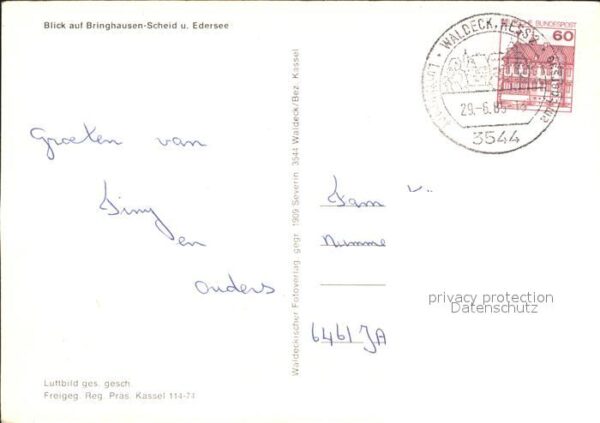 Blick auf Bringhausen-Scheid u. Edersee
DEUTSCHE BUNDESPOST
60
WALDECK, HESS 2
29.-6.85-18
3544
Groeten van
Diny
en
ouders
Waldeckischer Fotovertag gegr. 1909 Severin 3544 Waldeck/Bez. Kassel
Fam
Numme
6461 JA
privacy protection
Datenschutz
Luftbild ges. gesch.
Freigeg. Reg. Präs. Kassel 114-74